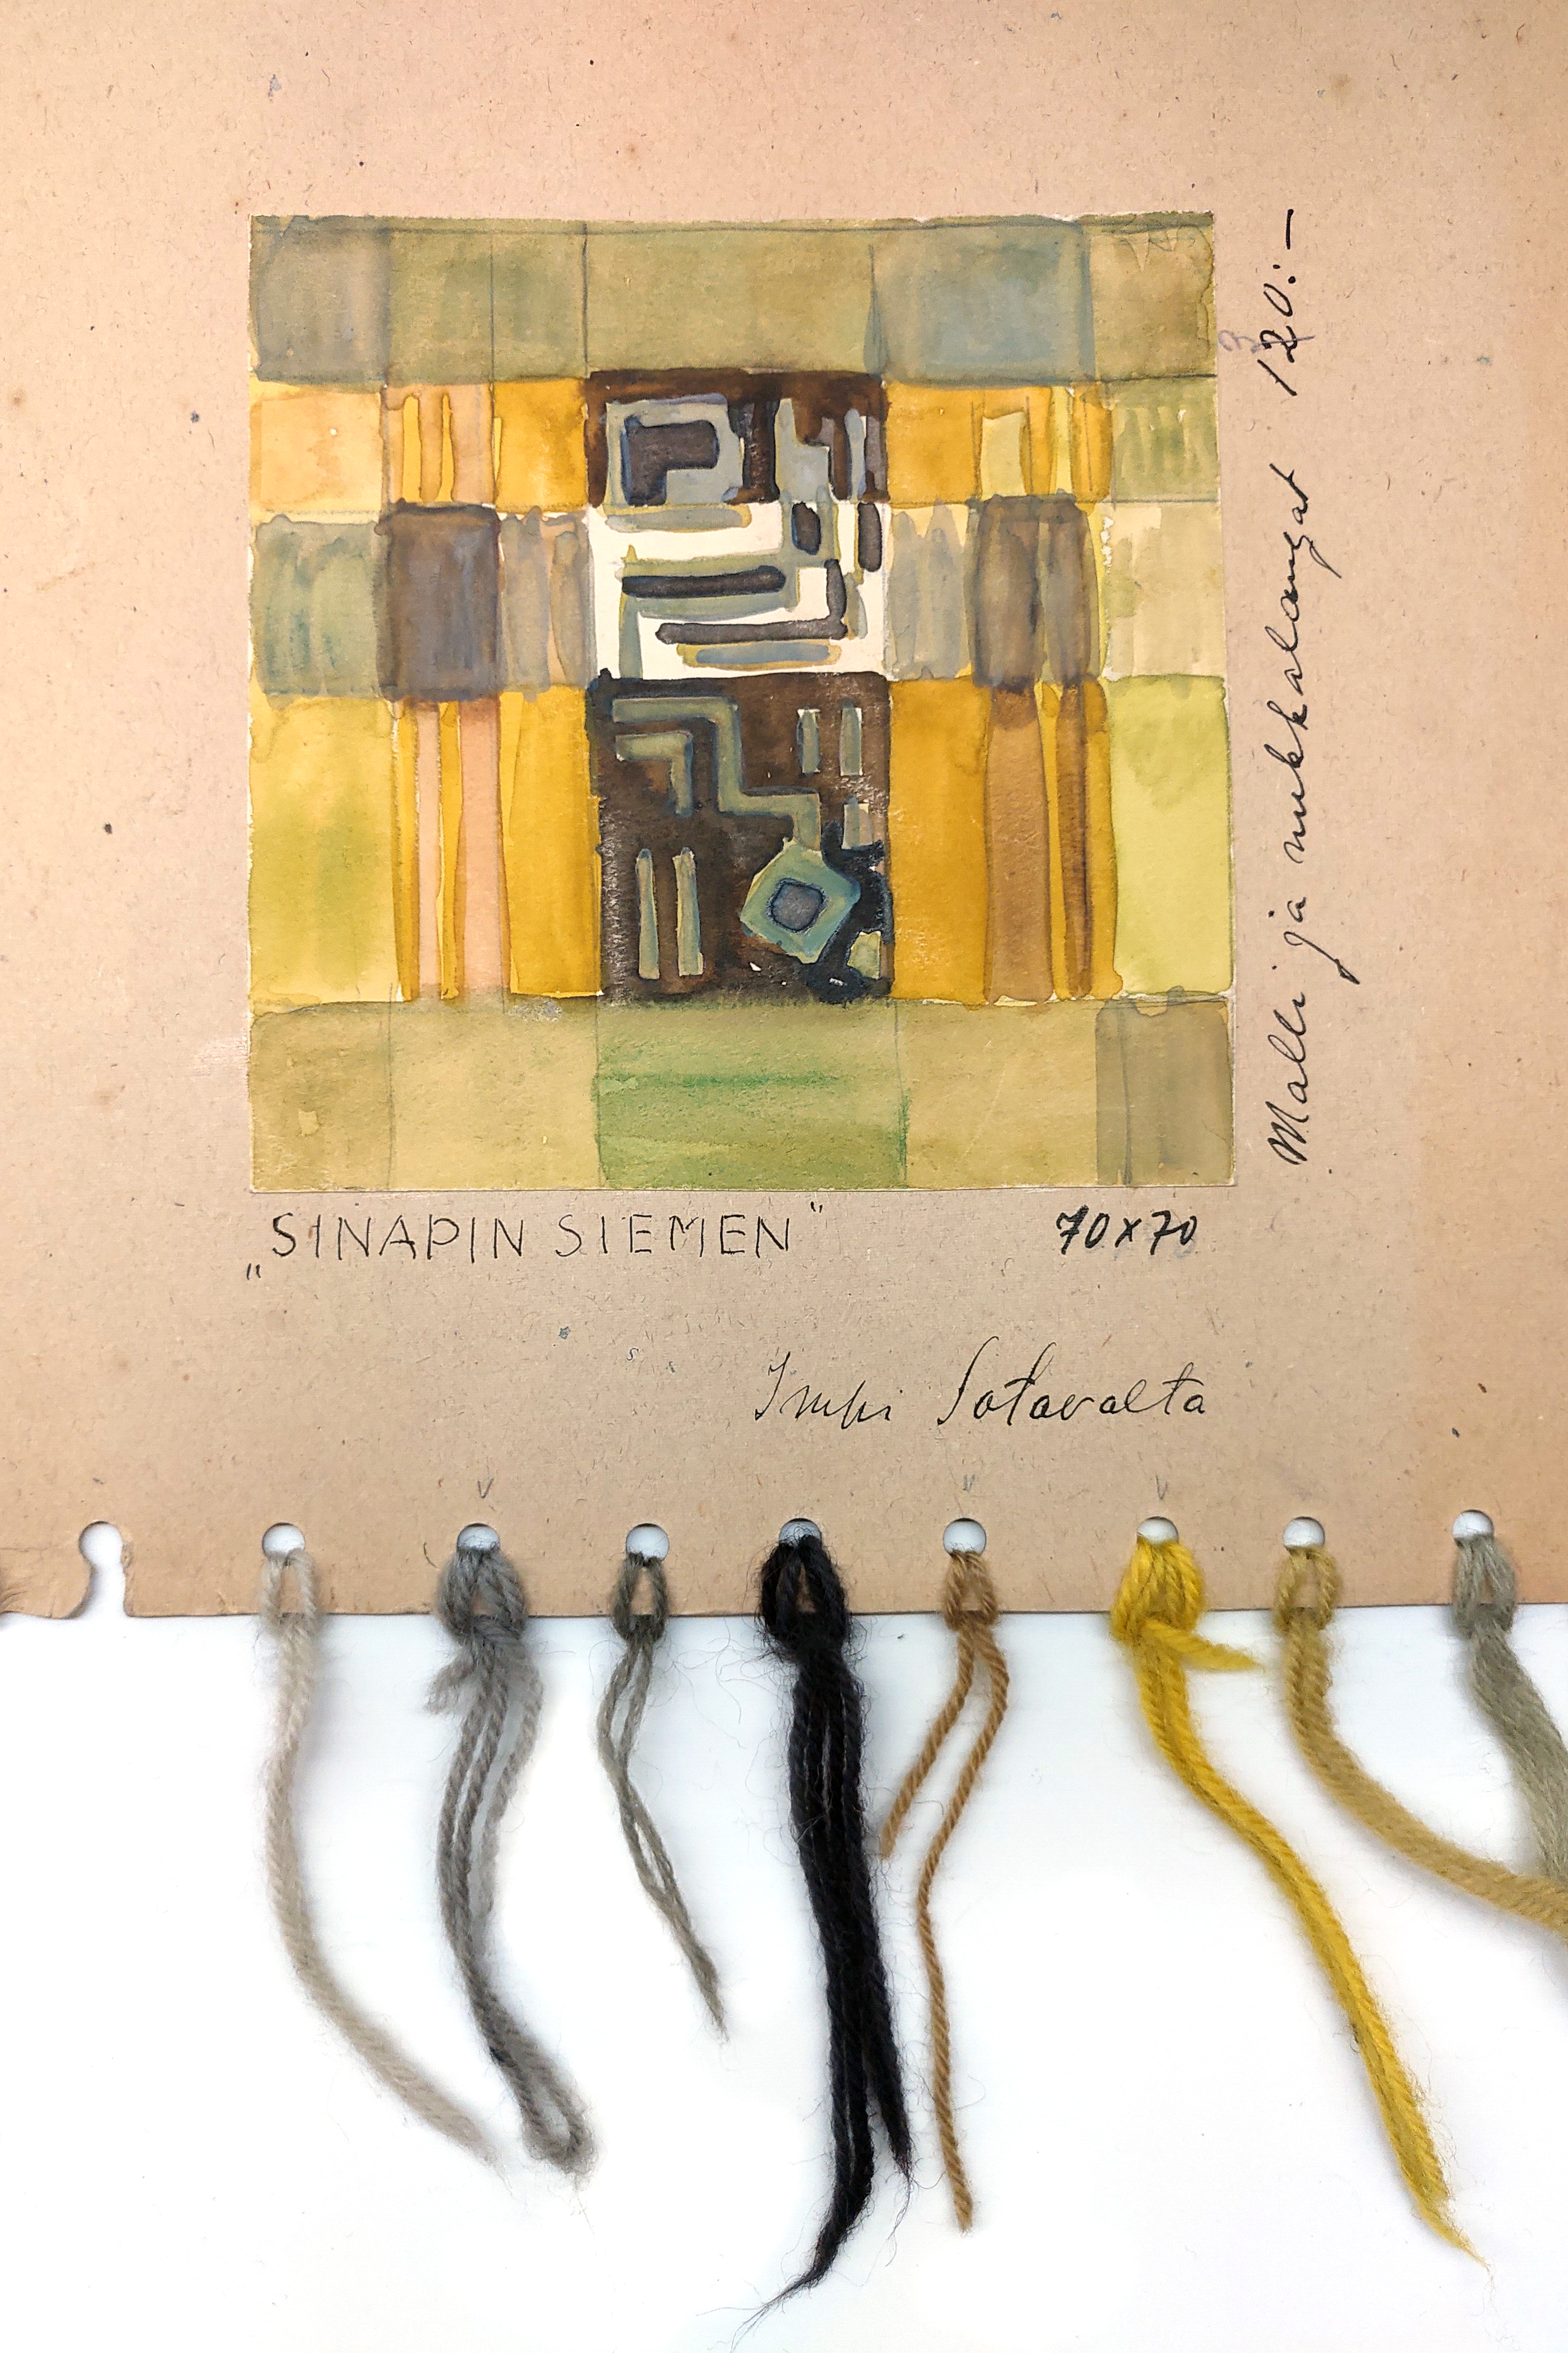 „SINAPIN SIEMEN"
70x70
Impi Sotavalta
Malli ja nukkalangat 120:—